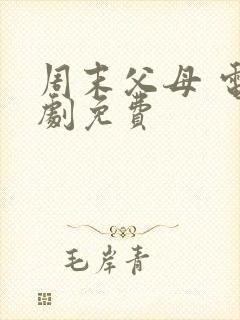 周末父母 電
劇免費
毛岸青